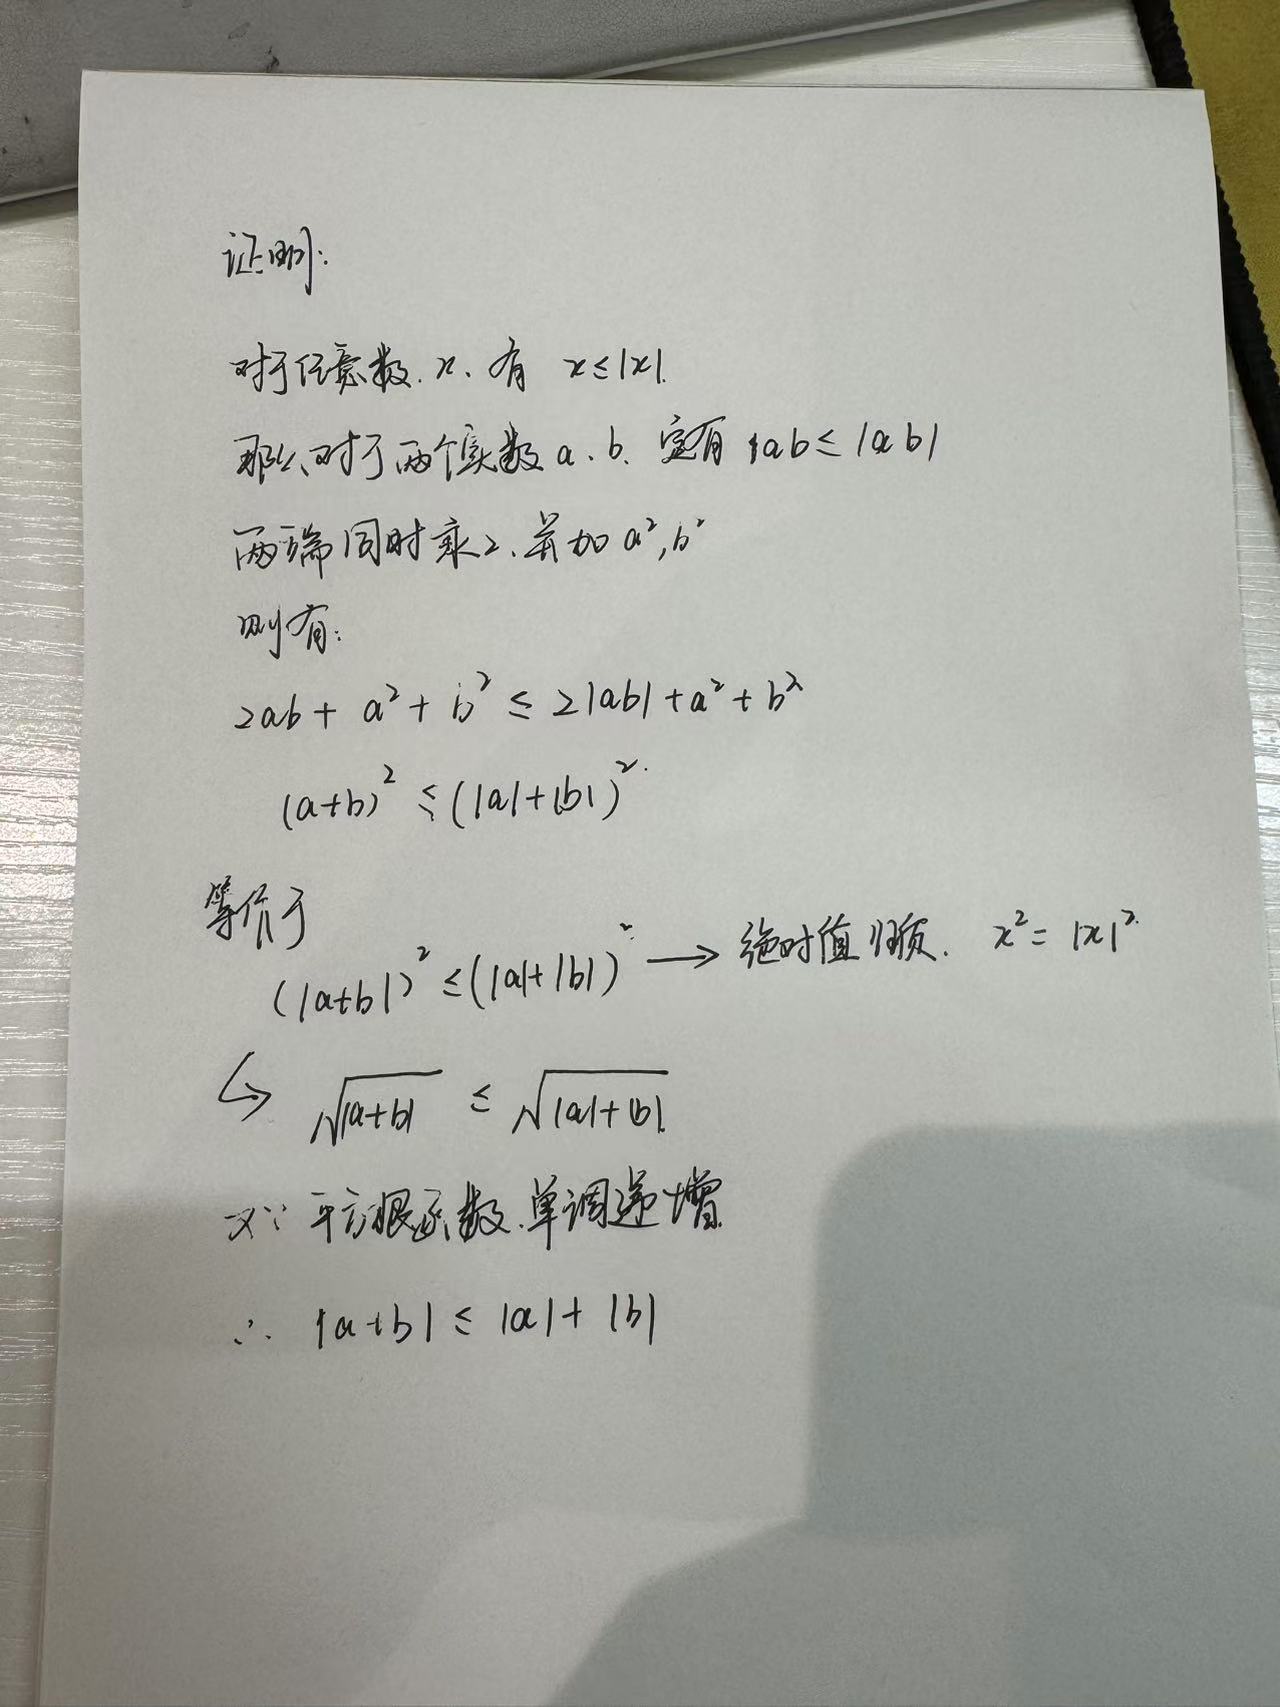 证明:
对于任意数x、有 x≤|x|.
那么对于两个实数a、b、定有 ab≤|ab|
两端同时乘2、并加a²,b²
则有:
2ab+a²+b²≤2|ab|+a²+b²
(a+b)²≤(|a|+|b|)²
等价于
(|a+b|)²≤(|a|+|b|)² → 绝对值性质. x²=|x|²
↳ √|a+b| ≤ √|a|+|b|
又∵ 平方根函数、单调递增
∴ |a+b|≤|a|+|b|